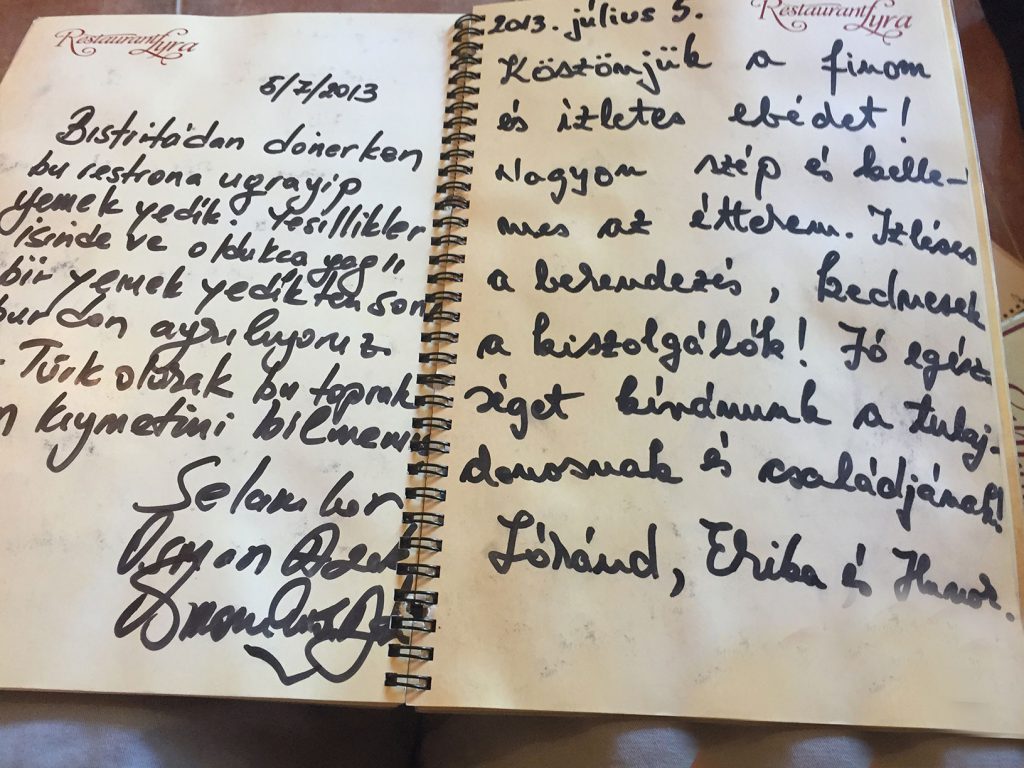 Restaurant Lyra
5/7/2013
Bistrita'dan dönerken
bu restrona ugrayip
yemek yedik. Yesillikler
isinde ve oldukca
bir yemek yedikten son
burdan ayrılıyoruz
Türk olarak bu toprak
kıymetini bilmemiz
Selamlar
Osman
Restaurant Lyra
2013. július 5.
Köszönjük a finom
és izletes ebédet!
Nagyon szép és kelle-
mes az étterem. Izléses
a berendezés, kedvesek
a kiszolgálók! Jó egész-
séget kívánunk a tulaj-
donosnak és családjának!
Lóránd, Erika és